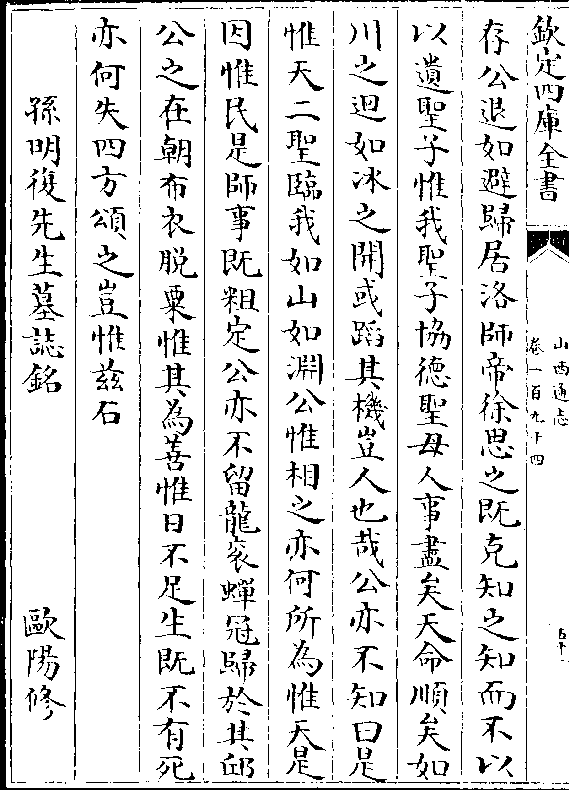 欽定四庫全書
山西通志
卷一百九十四
存公退如避歸居洛師帝徐思之既克知之知而不以
以遺聖子惟我聖子協德聖母人事盡矣天命順矣如
川之迴如冰之開或蹈其機豈人也哉公亦不知曰是
惟天二聖臨我如山如淵公惟相之亦何所為惟天是
因惟民是師事既粗定公亦不留龍衮蟬冠歸於其邱
公之在朝布衣脱粟惟其為善惟日不足生既不有死
亦何失四方頌之豈惟兹石
孫明復先生墓誌銘　歐陽修